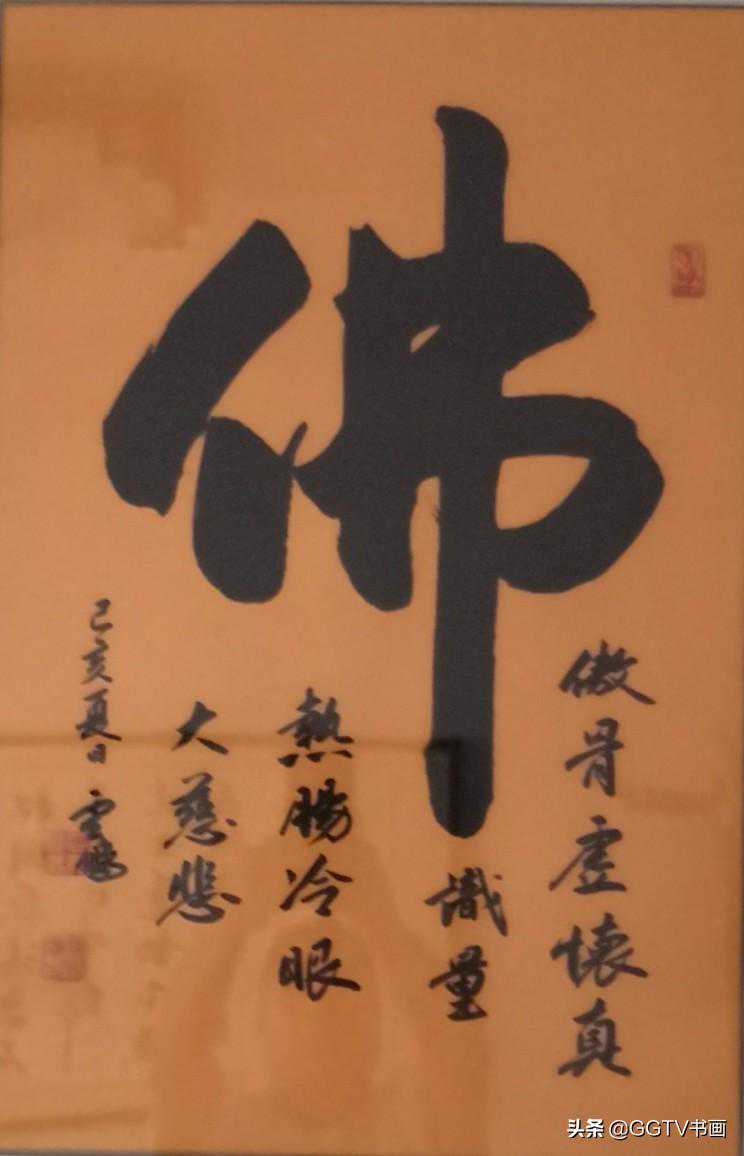 佛
傲骨虚懷真
識量
熱腸冷眼
大慈悲
己亥夏日
头条 @GGTV书画